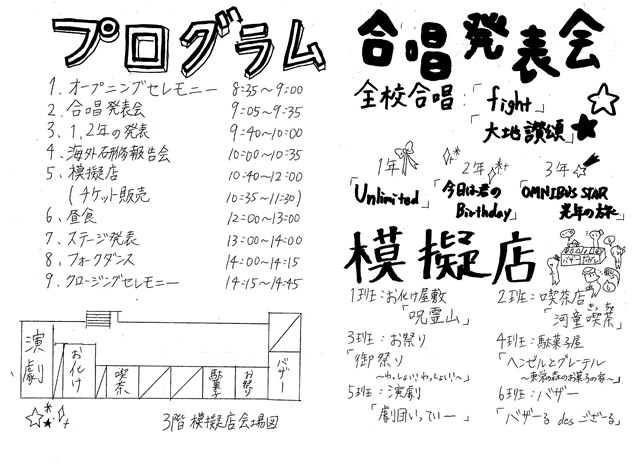 プログラム
1. オープニングセレモニー 8:35～9:00
2. 合唱発表会 9:05～9:35
3. 1,2年の発表 9:40～10:00
4. 海外研修報告会 10:00～10:35
5. 模擬店 10:40～12:00
(チケット販売 10:35～11:30)
6. 昼食 12:00～13:00
7. ステージ発表 13:00～14:00
8. フォークダンス 14:00～14:15
9. クロージングセレモニー 14:15～14:45
演劇
お化け
喫茶
駄菓子
お祭り
バザー
3階 模擬店会場図
合唱発表会
全校合唱:「fight」
「大地讃頌」
1年
「Unlimited」
2年
「今日は君の
Birthday」
3年
「OMNIBUS STAR
光年の旅」
模擬店
1班:お化け屋敷
「呪霊山」
2班:喫茶店
「河童喫茶」
きっ
3班:お祭り
「御祭り
～わっしょい!わっしょい!～」
4班:駄菓子屋
「ヘンゼルとグレーテル
5班:演劇
「劇団いっていー」
6班:バザー
「バザーる des ござーる」